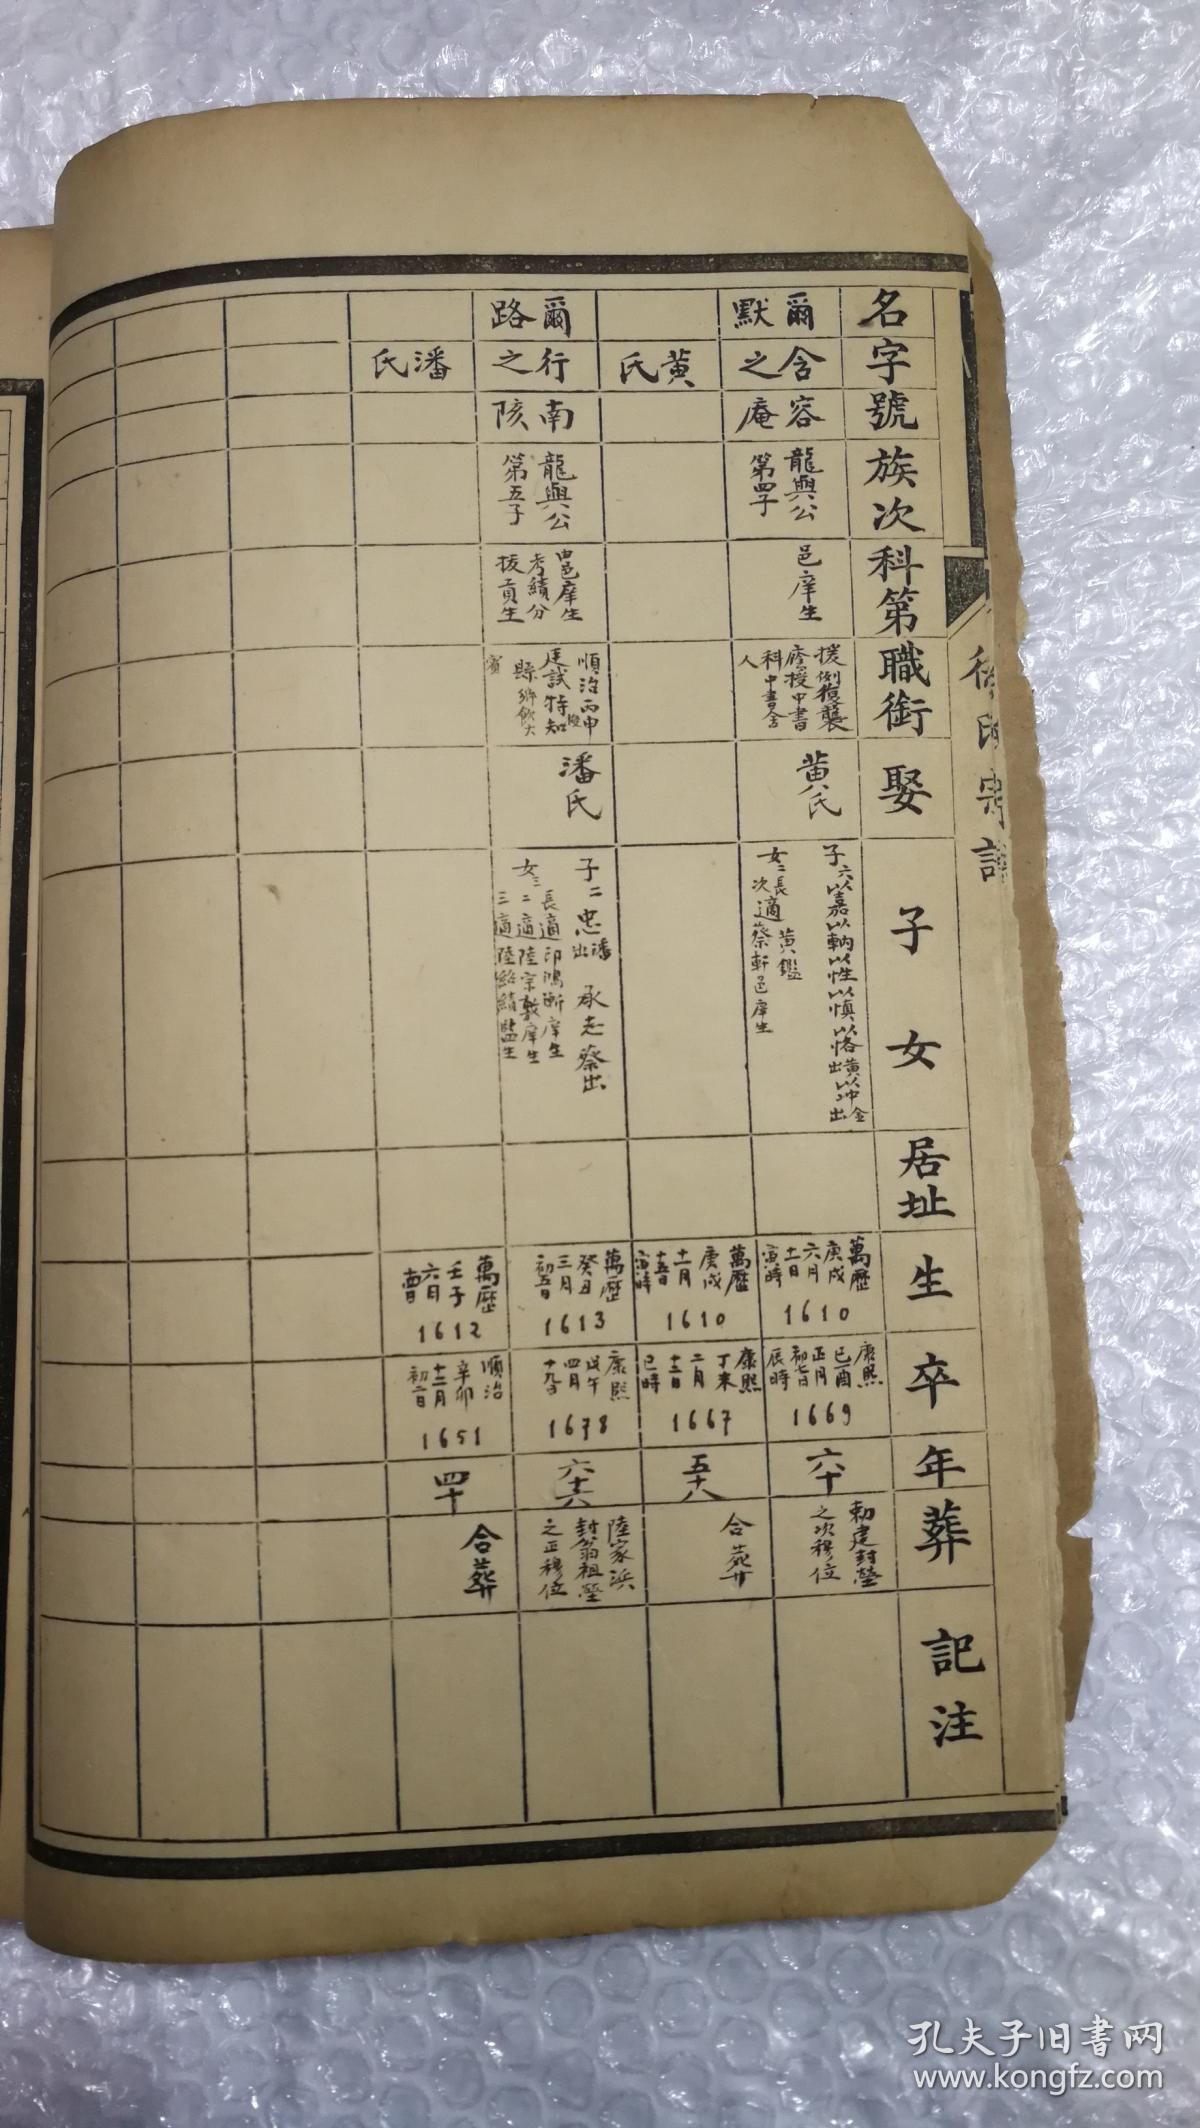 名
字
號
族次
科第
職銜
娶
子女
居址
生
卒
年
葬
記注
爾默
含之
容庵
龍與公
第四子
邑庠生
授中書
科中書舍
人
黄氏
子六以嘉以軜以性以慎以恪黄出以冲金出
女二長適黄鑑
次適蔡軒邑庠生
萬歷
庚戌
六月
十一日
寅時
1610
康熙
已酉
正月
初七日
辰時
1669
六十
勅建封塋
之次穆位
黄氏
萬歷
庚戌
十一月
十五日
寅時
1610
康熙
丁未
二月
十二日
已時
1667
五十八
合葬
爾路
行之
南陔
龍與公
第五子
由邑庠生
考績分
拔貢生
順治丙申
廷試特
縣鄉飲大
賓
潘氏
子二忠潘出 承志蔡出
女三長適印鴻漸庠生
二適陸宗敦庠生
三適陸紹績監生
萬歷
癸丑
三月
初五日
1613
康熙
戊午
四月
十九日
1678
六十六
陸家浜
封翁祖塋
之正穆位
潘氏
萬歷
壬子
六月
1612
順治
辛卯
十二月
初二日
1651
四十
合葬
孔夫子旧书网
www.kongfz.com